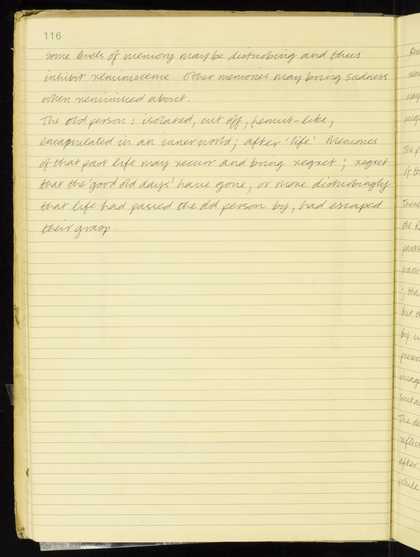 116
some levels of memory may be disturbing and thus
inhibit reminiscence. Other memories may bring sadness
when reminisced about.
The old person: isolated, cut off, hermit-like,
encapsulated in an inner world; after 'life' Memories
of that past life may recur and bring regret; regret
that the 'good old days' have gone, or more disturbingly
that life had passed the old person by, had escaped
their grasp